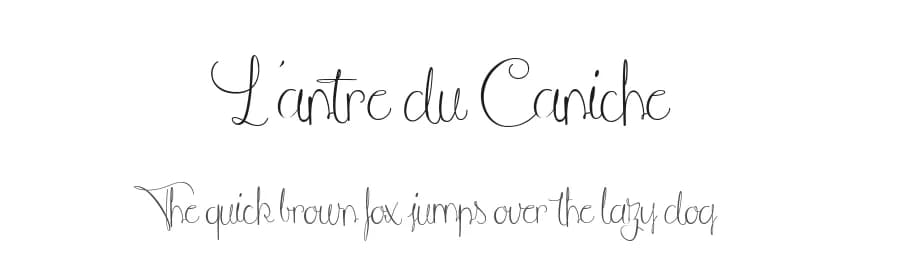 L'antre du Caniche
The quick brown fox jumps over the lazy dog